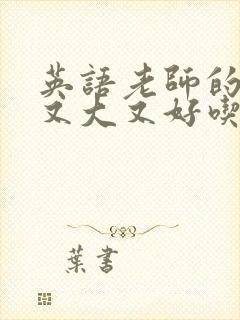 英語老師的
又大又好喫
葉書